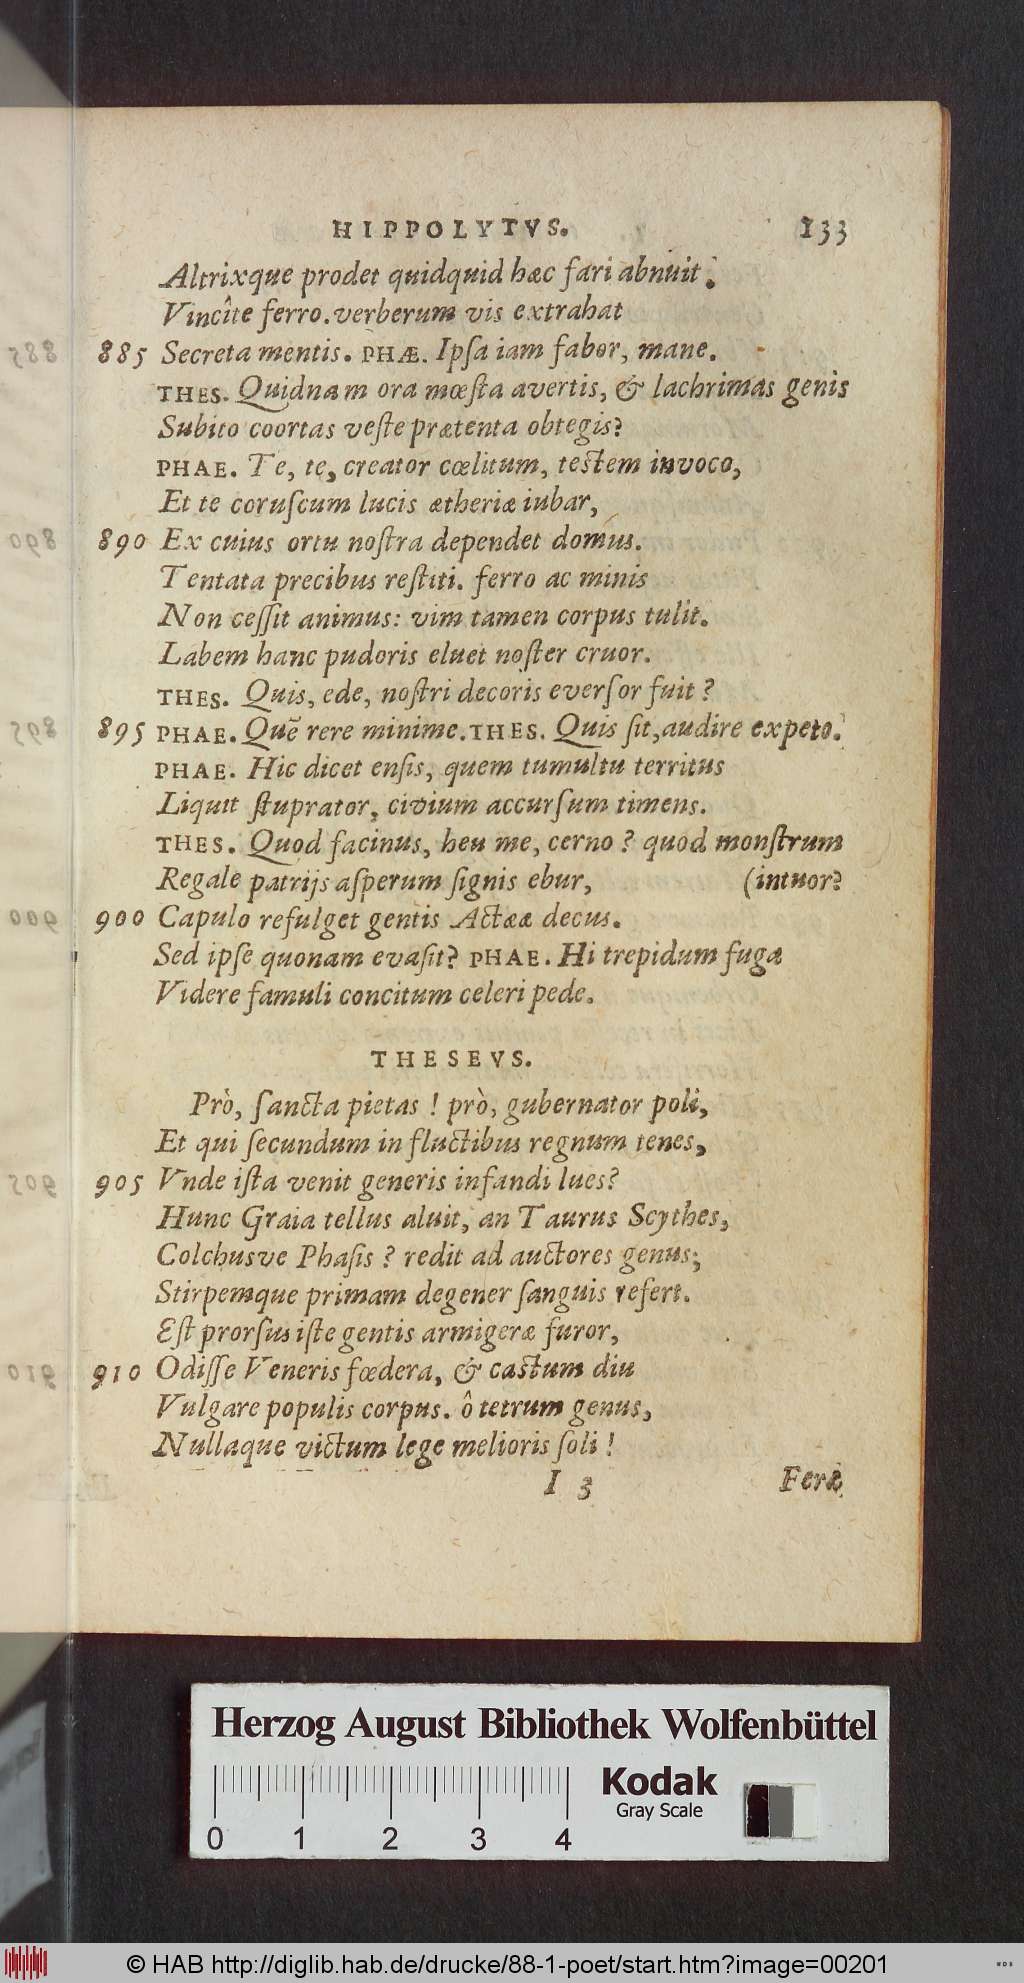 HIPPOLYTVS. 133
Altrixque prodet quidquid hæc fari abnuit.
Vincîte ferro. verberum vis extrahat
885 Secreta mentis. PHÆ. Ipſa iam fabor, mane.
THES. Quidnam ora mœſta avertis, & lachrimas genis
Subito coortas veſte prætenta obtegis?
PHAE. Te, te, creator cœlitum, testem invoco,
Et te coruſcum lucis ætheriæ iubar,
890 Ex cuius ortu noſtra dependet domus.
Tentata precibus reſtiti. ferro ac minis
Non ceſſit animus: vim tamen corpus tulit.
Labem hanc pudoris eluet noſter cruor.
THES. Quis, ede, noſtri decoris everſor fuit?
895 PHAE. Quẽ rere minime. THES. Quis ſit, audire expeto.
PHAE. Hic dicet enſis, quem tumultu territus
Liquit ſtuprator, civium accurſum timens.
THES. Quod facinus, heu me, cerno? quod monſtrum
Regale patrijs aſperum ſignis ebur, (intuor?
900 Capulo refulget gentis Actææ decus.
Sed ipſe quonam evaſit? PHAE. Hi trepidum fuga
Videre famuli concitum celeri pede.
THESEVS.
Prò, ſancta pietas! prò, gubernator poli,
Et qui ſecundum in fluctibus regnum tenes,
905 Vnde iſta venit generis infandi lues?
Hunc Graia tellus aluit, an Taurus Scythes,
Colchusve Phaſis? redit ad auctores genus;
Stirpemque primam degener ſanguis refert.
Eſt prorſus iſte gentis armigeræ furor,
910 Odiſſe Veneris fœdera, & castum diu
Vulgare populis corpus. ô tetrum genus,
Nullaque victum lege melioris ſoli!
I 3 Feræ
Herzog August Bibliothek Wolfenbüttel
Kodak
Gray Scale
0 1 2 3 4
© HAB http://diglib.hab.de/drucke/88-1-poet/start.htm?image=00201